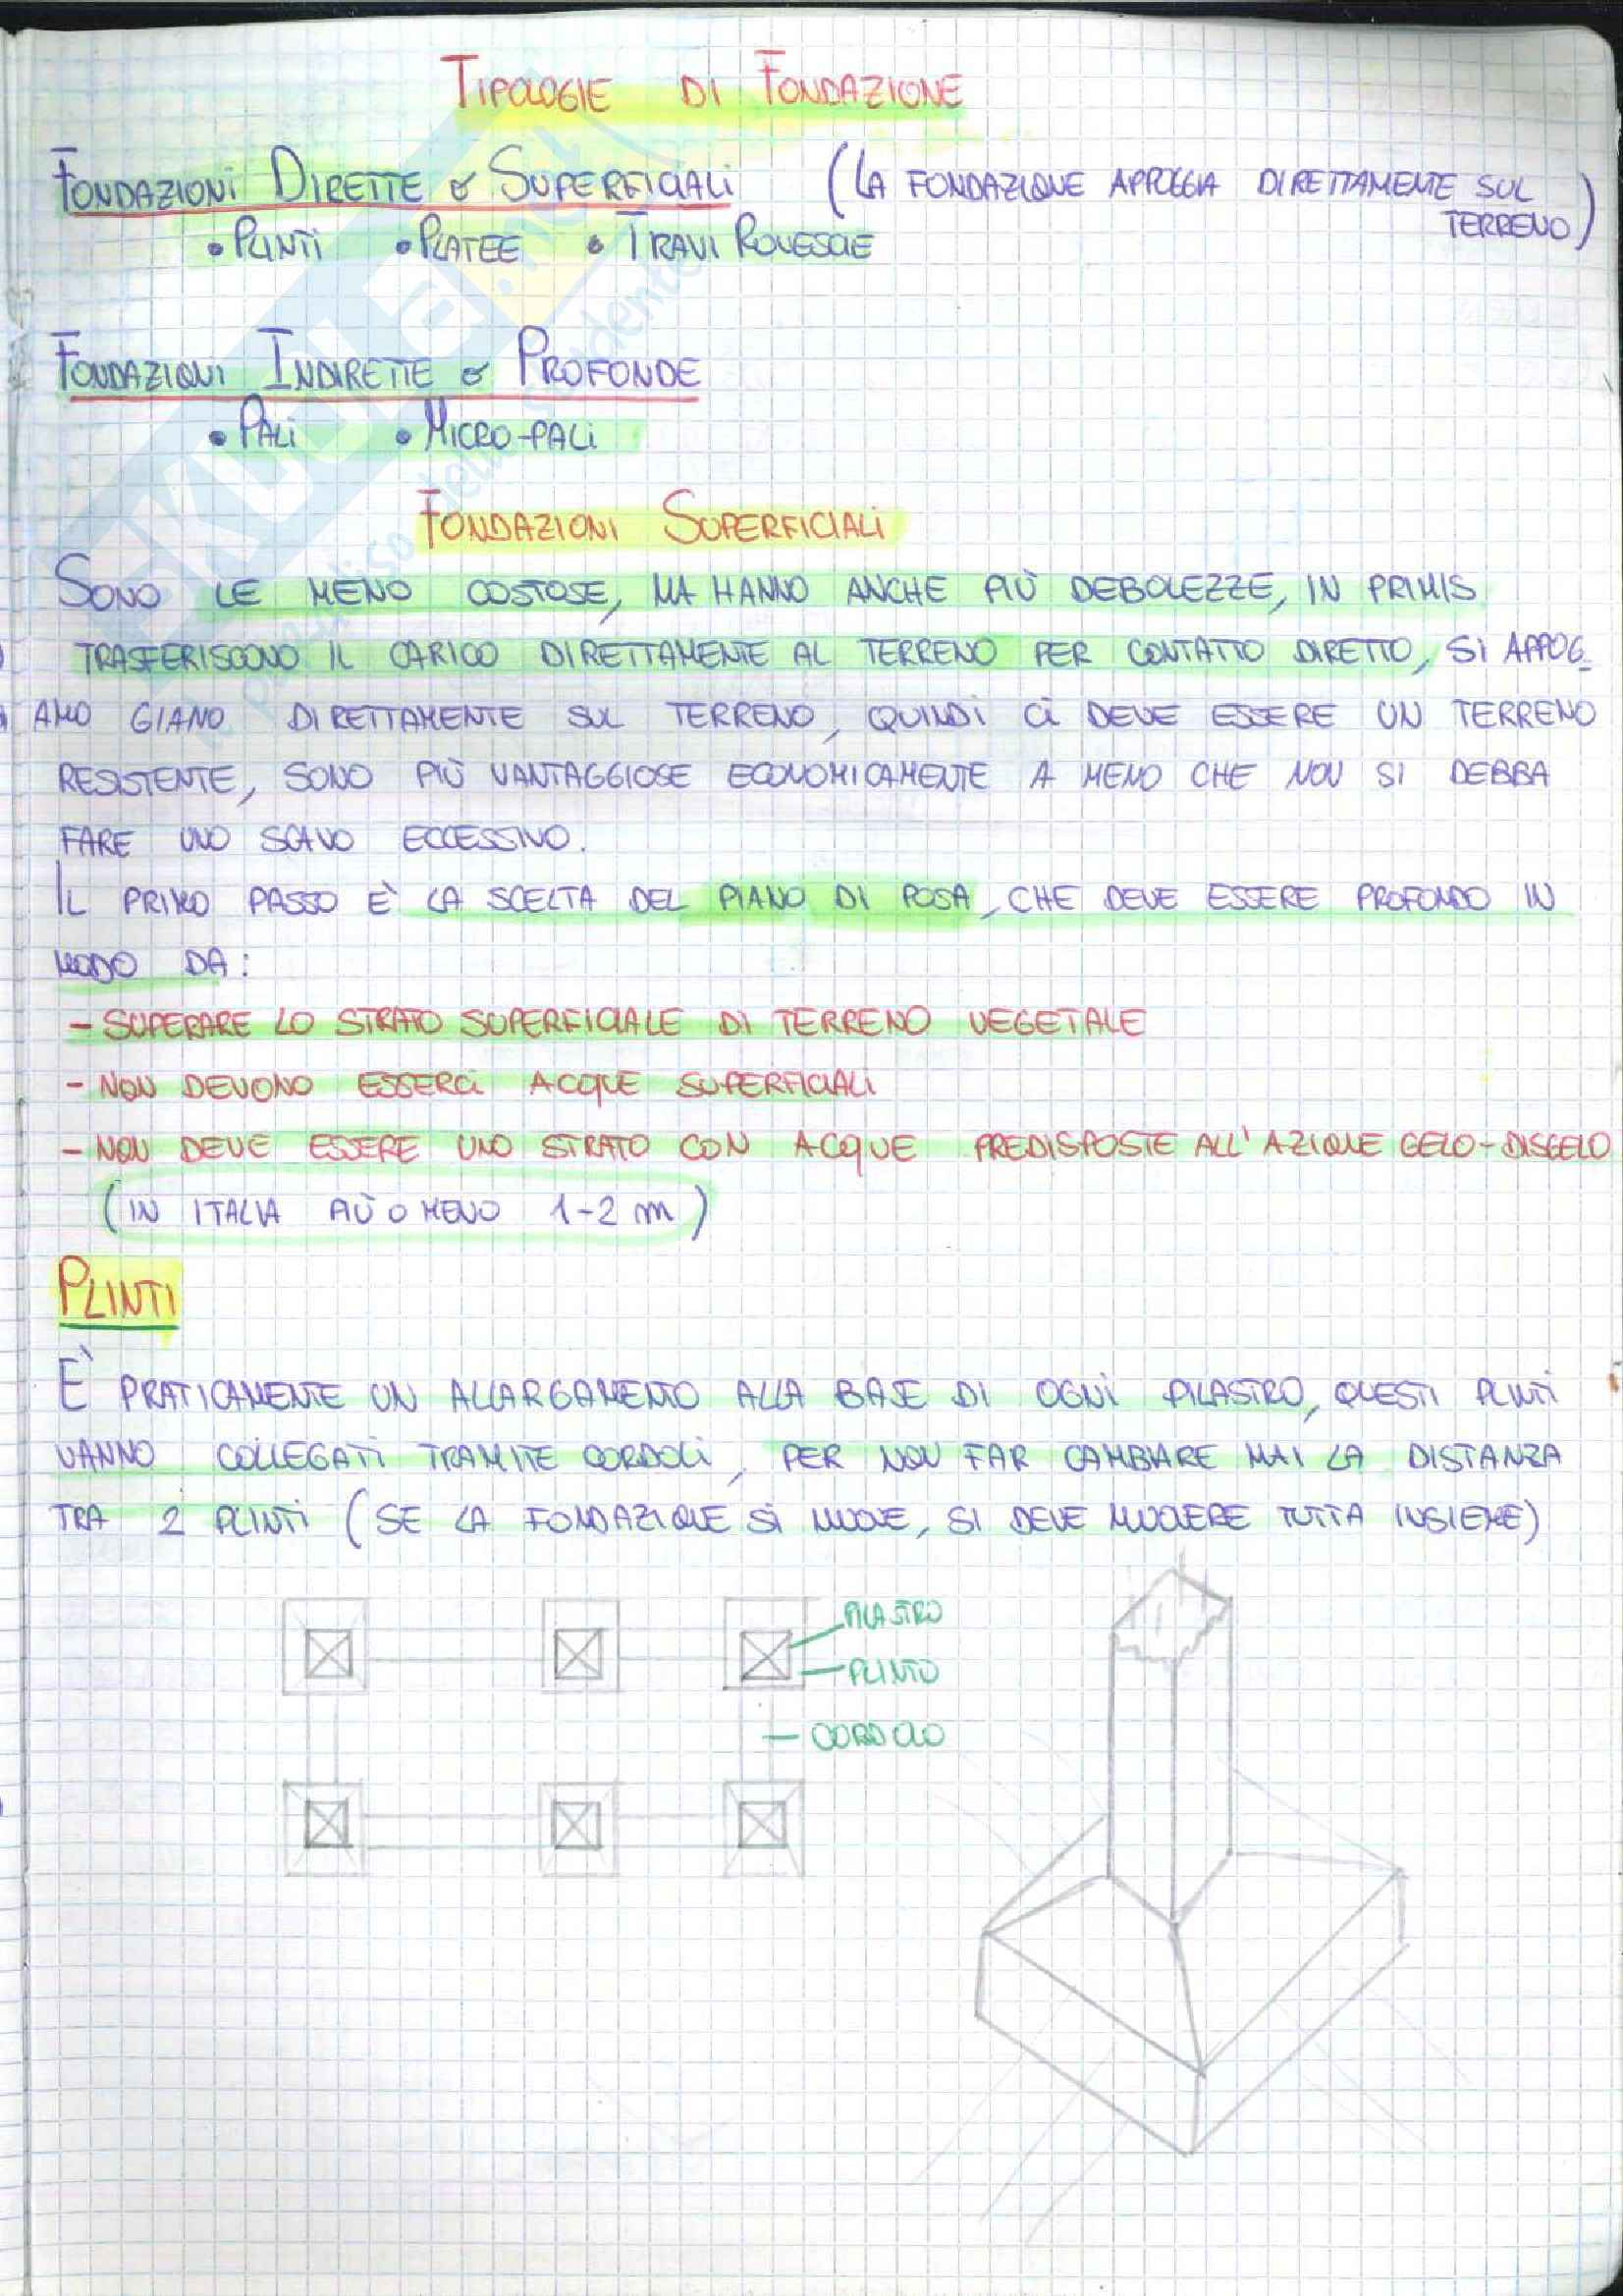 TIPOLOGIE DI FONDAZIONE
FONDAZIONI DIRETTE o SUPERFICIALI (LA FONDAZIONE APPOGGIA DIRETTAMENTE SUL
TERRENO)
• PLINTI • PLATEE • TRAVI ROVESCIE
FONDAZIONI INDIRETTE o PROFONDE
• PALI • MICRO-PALI
FONDAZIONI SUPERFICIALI
SONO LE MENO COSTOSE, MA HANNO ANCHE PIÙ DEBOLEZZE, IN PRIMIS
TRASFERISCONO IL CARICO DIRETTAMENTE AL TERRENO PER CONTATTO DIRETTO, SI APPOG-
GIANO DIRETTAMENTE SUL TERRENO, QUINDI CI DEVE ESSERE UN TERRENO
RESISTENTE, SONO PIÙ VANTAGGIOSE ECONOMICAMENTE A MENO CHE NON SI DEBBA
FARE UNO SCAVO ECCESSIVO.
IL PRIMO PASSO È LA SCELTA DEL PIANO DI POSA, CHE DEVE ESSERE PROFONDO IN
MODO DA:
- SUPERARE LO STRATO SUPERFICIALE DI TERRENO VEGETALE
- NON DEVONO ESSERCI ACQUE SUPERFICIALI
- NON DEVE ESSERE UNO STRATO CON ACQUE PREDISPOSTE ALL'AZIONE GELO-DISGELO
(IN ITALIA PIÙ O MENO 1-2 m)
PLINTI
È PRATICAMENTE UN ALLARGAMENTO ALLA BASE DI OGNI PILASTRO, QUESTI PLINTI
VANNO COLLEGATI TRAMITE CORDOLI, PER NON FAR CAMBIARE MAI LA DISTANZA
TRA 2 PLINTI (SE LA FONDAZIONE SI MUOVE, SI DEVE MUOVERE TUTTA INSIEME)
PILASTRO
PLINTO
CORDOLO